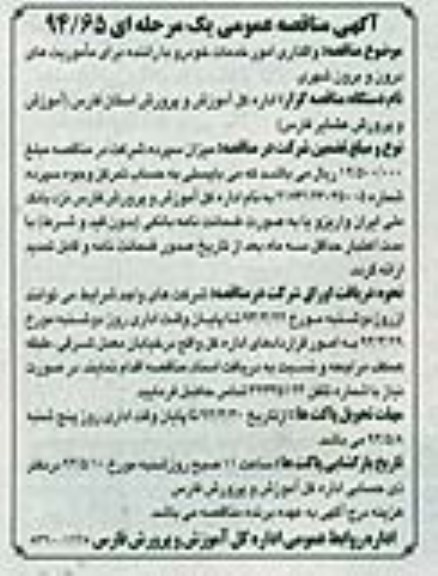 آگهی مناقصه عمومی یک مرحله ای ۹۴/۶۵
موضوع مناقصه: واگذاری امور خدمات خودرو با راننده برای مأموریت های
درون و برون شهری
نام دستگاه مناقصه گزار: اداره کل آموزش و پرورش استان فارس (آموزش
و پرورش عشایر فارس)
نوع و مبلغ تضمین شرکت در مناقصه: میزان سپرده شرکت در مناقصه مبلغ
ریال می باشد که می بایستی به حساب تمرکز وجوه سپرده
شماره به نام اداره کل آموزش و پرورش فارس نزد بانک
ملی ایران واریز و یا به صورت ضمانت نامه بانکی (بدون قید و شرط) با
مدت اعتبار حداقل سه ماه بعد از تاریخ صدور ضمانت نامه و قابل تمدید
ارائه گردد
نحوه دریافت اوراق شرکت در مناقصه: شرکت های واجد شرایط می توانند
از روز دوشنبه مورخ تا پایان وقت اداری روز دوشنبه مورخ
به امور قراردادهای اداره کل واقع در خیابان معدل شرقی طبقه
همکف مراجعه و نسبت به دریافت اسناد مناقصه اقدام نمایند در صورت
نیاز با شماره تلفن تماس حاصل فرمایید
مهلت تحویل پاکت ها: از تاریخ تا پایان وقت اداری روز پنج شنبه
می باشد
تاریخ بازگشایی پاکت ها: ساعت ۱۱ صبح روز شنبه مورخ در دفتر
ذی حسابی اداره کل آموزش و پرورش فارس
هزینه درج آگهی به عهده برنده مناقصه می باشد
اداره روابط عمومی اداره کل آموزش و پرورش فارس